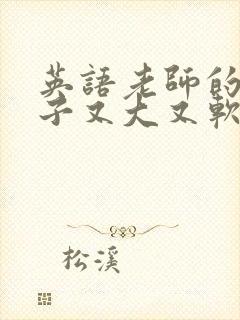 英語老師的
子又大又軟
松溪